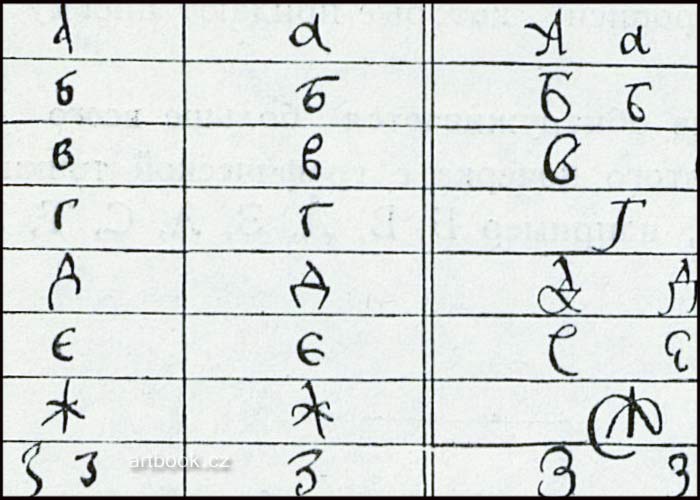 А а А а
б Б Б б
в в В
г Г Г
Д Д Д Д
є є Е Е
Ж Ж Ж
З З З З З
artbook.cz